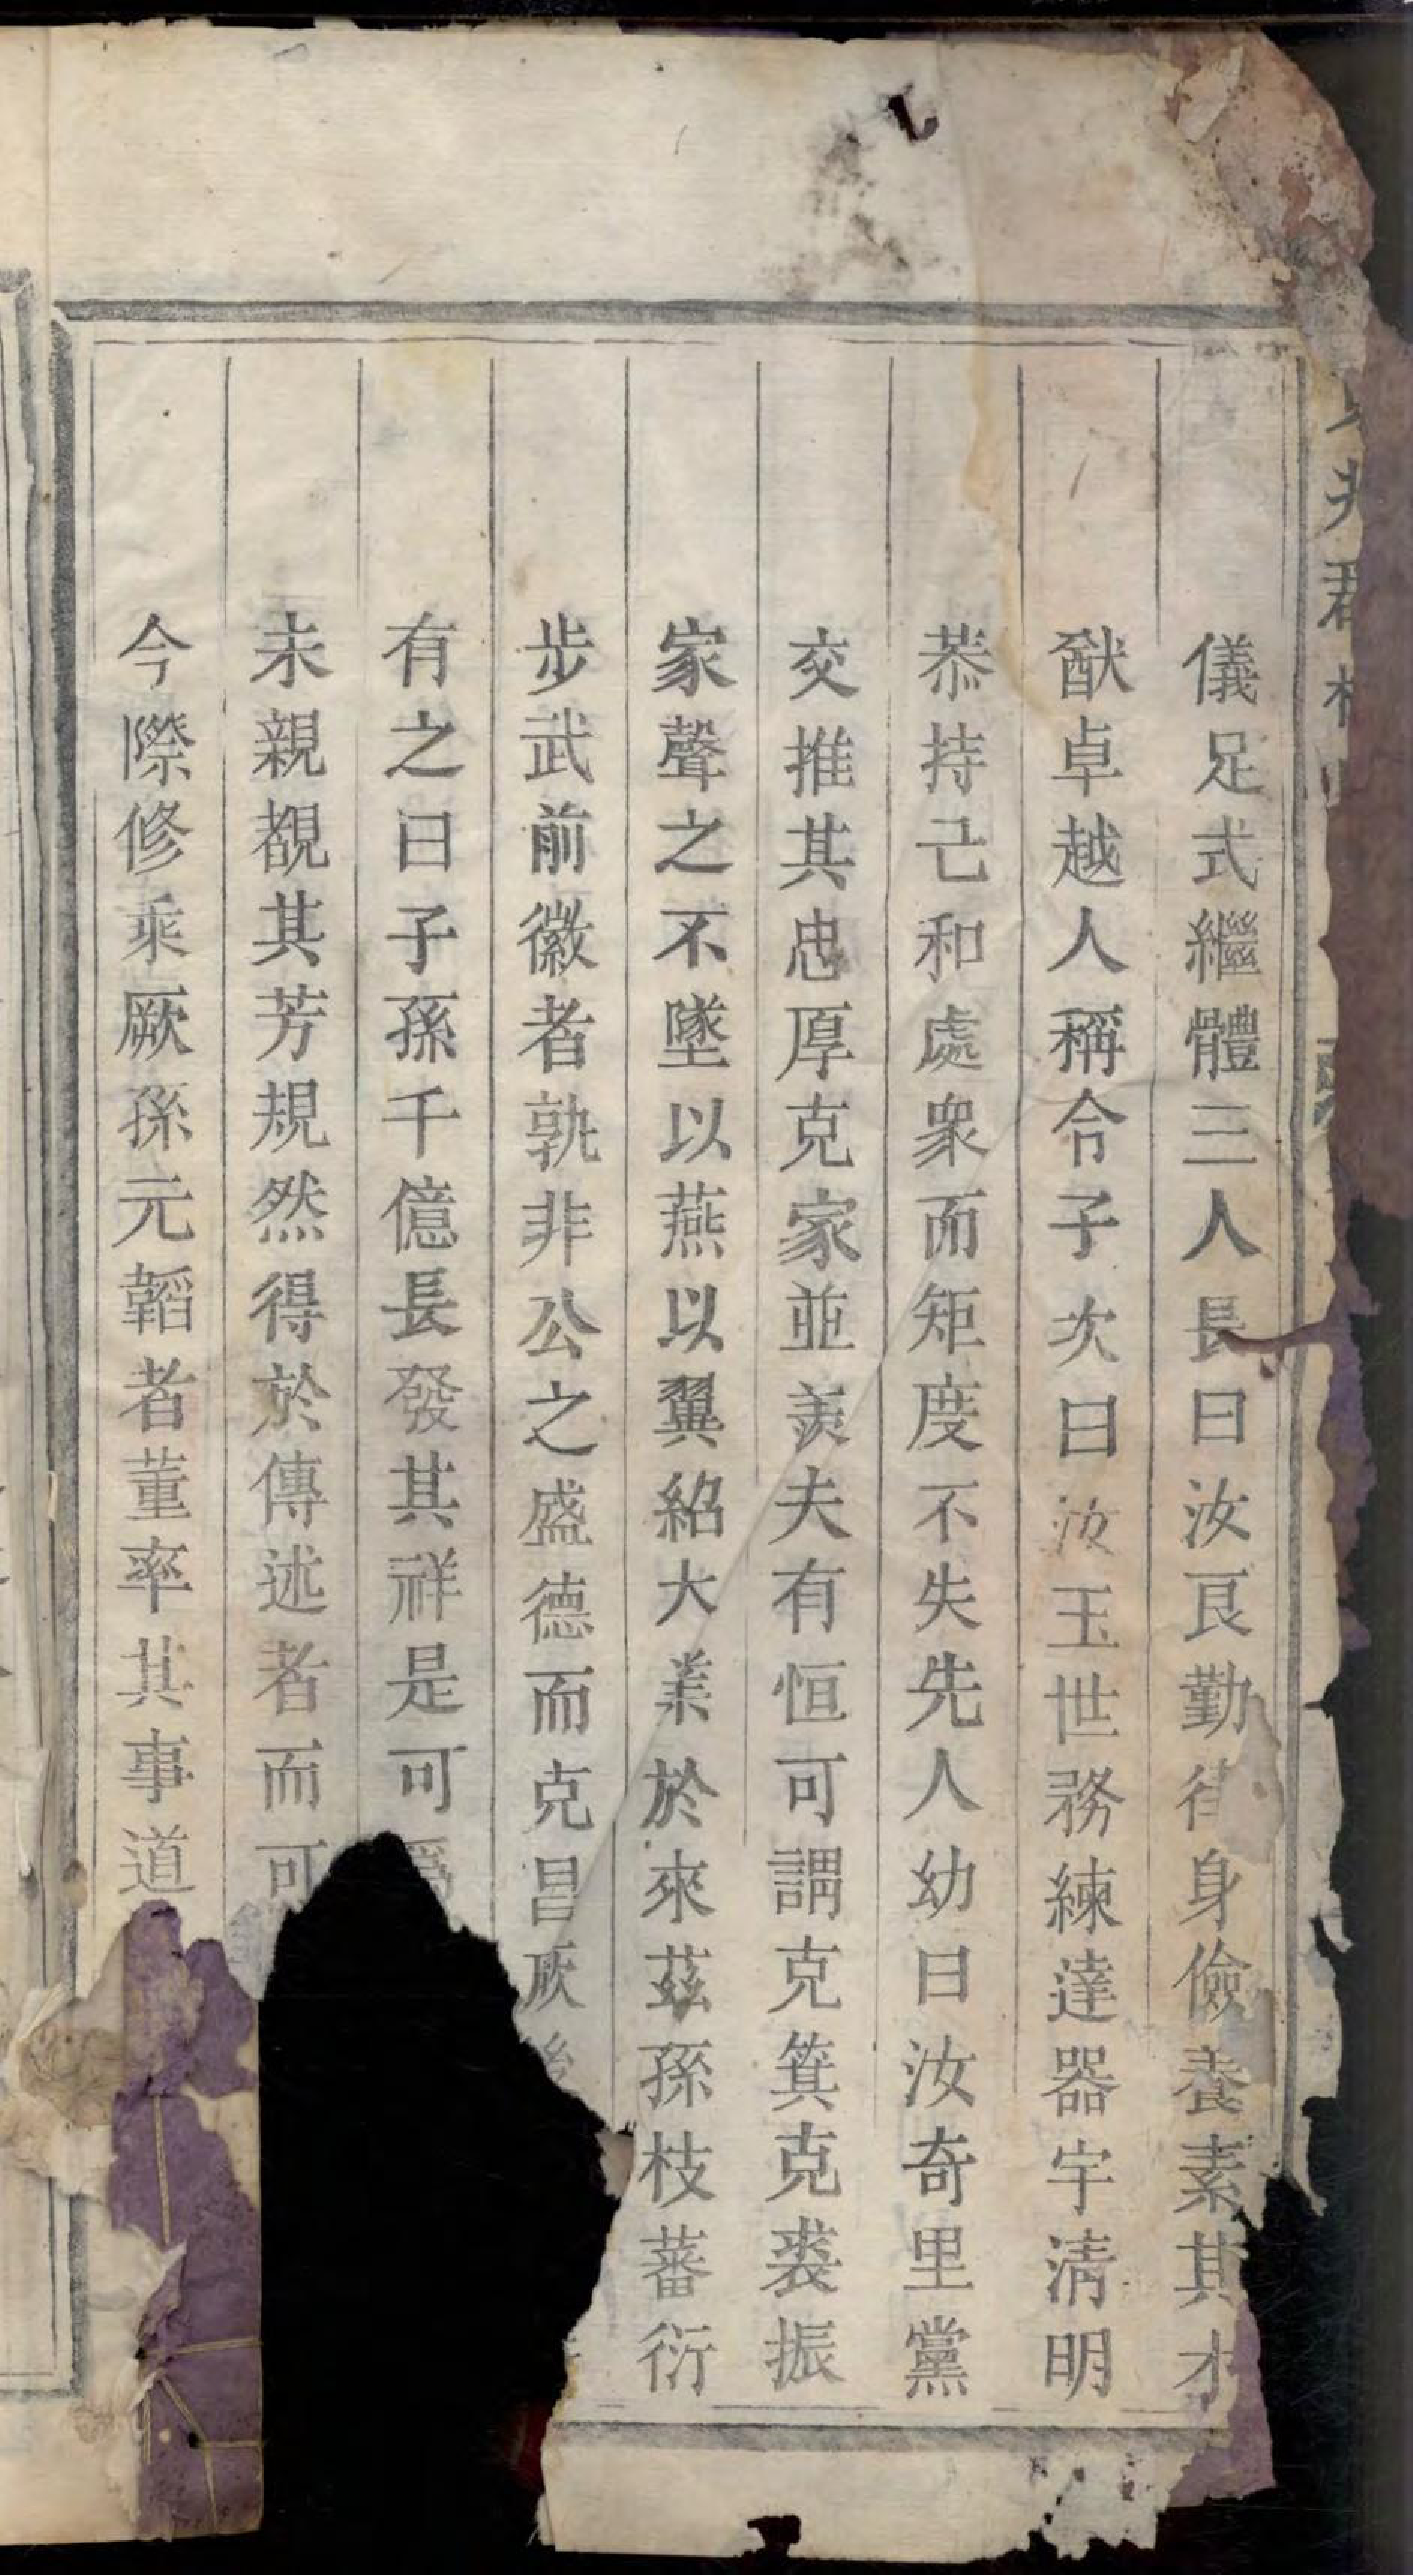 儀足式繼體三人長曰汝良勤身儉養素其才
猷卓越人稱令子次曰汝玉世務練達器宇清明
恭持己和處衆而矩度不失先人幼曰汝奇里黨
交推其忠厚克家並羨夫有恒可謂克箕克裘振
家聲之不墜以燕以翼紹大業於來茲孫枝蕃衍
步武前徽者孰非公之盛德而克昌厥後
有之曰子孫千億長發其祥是可爲
未親覩其芳規然得於傳述者而可
今際修乘厥孫元韜者董率其事道